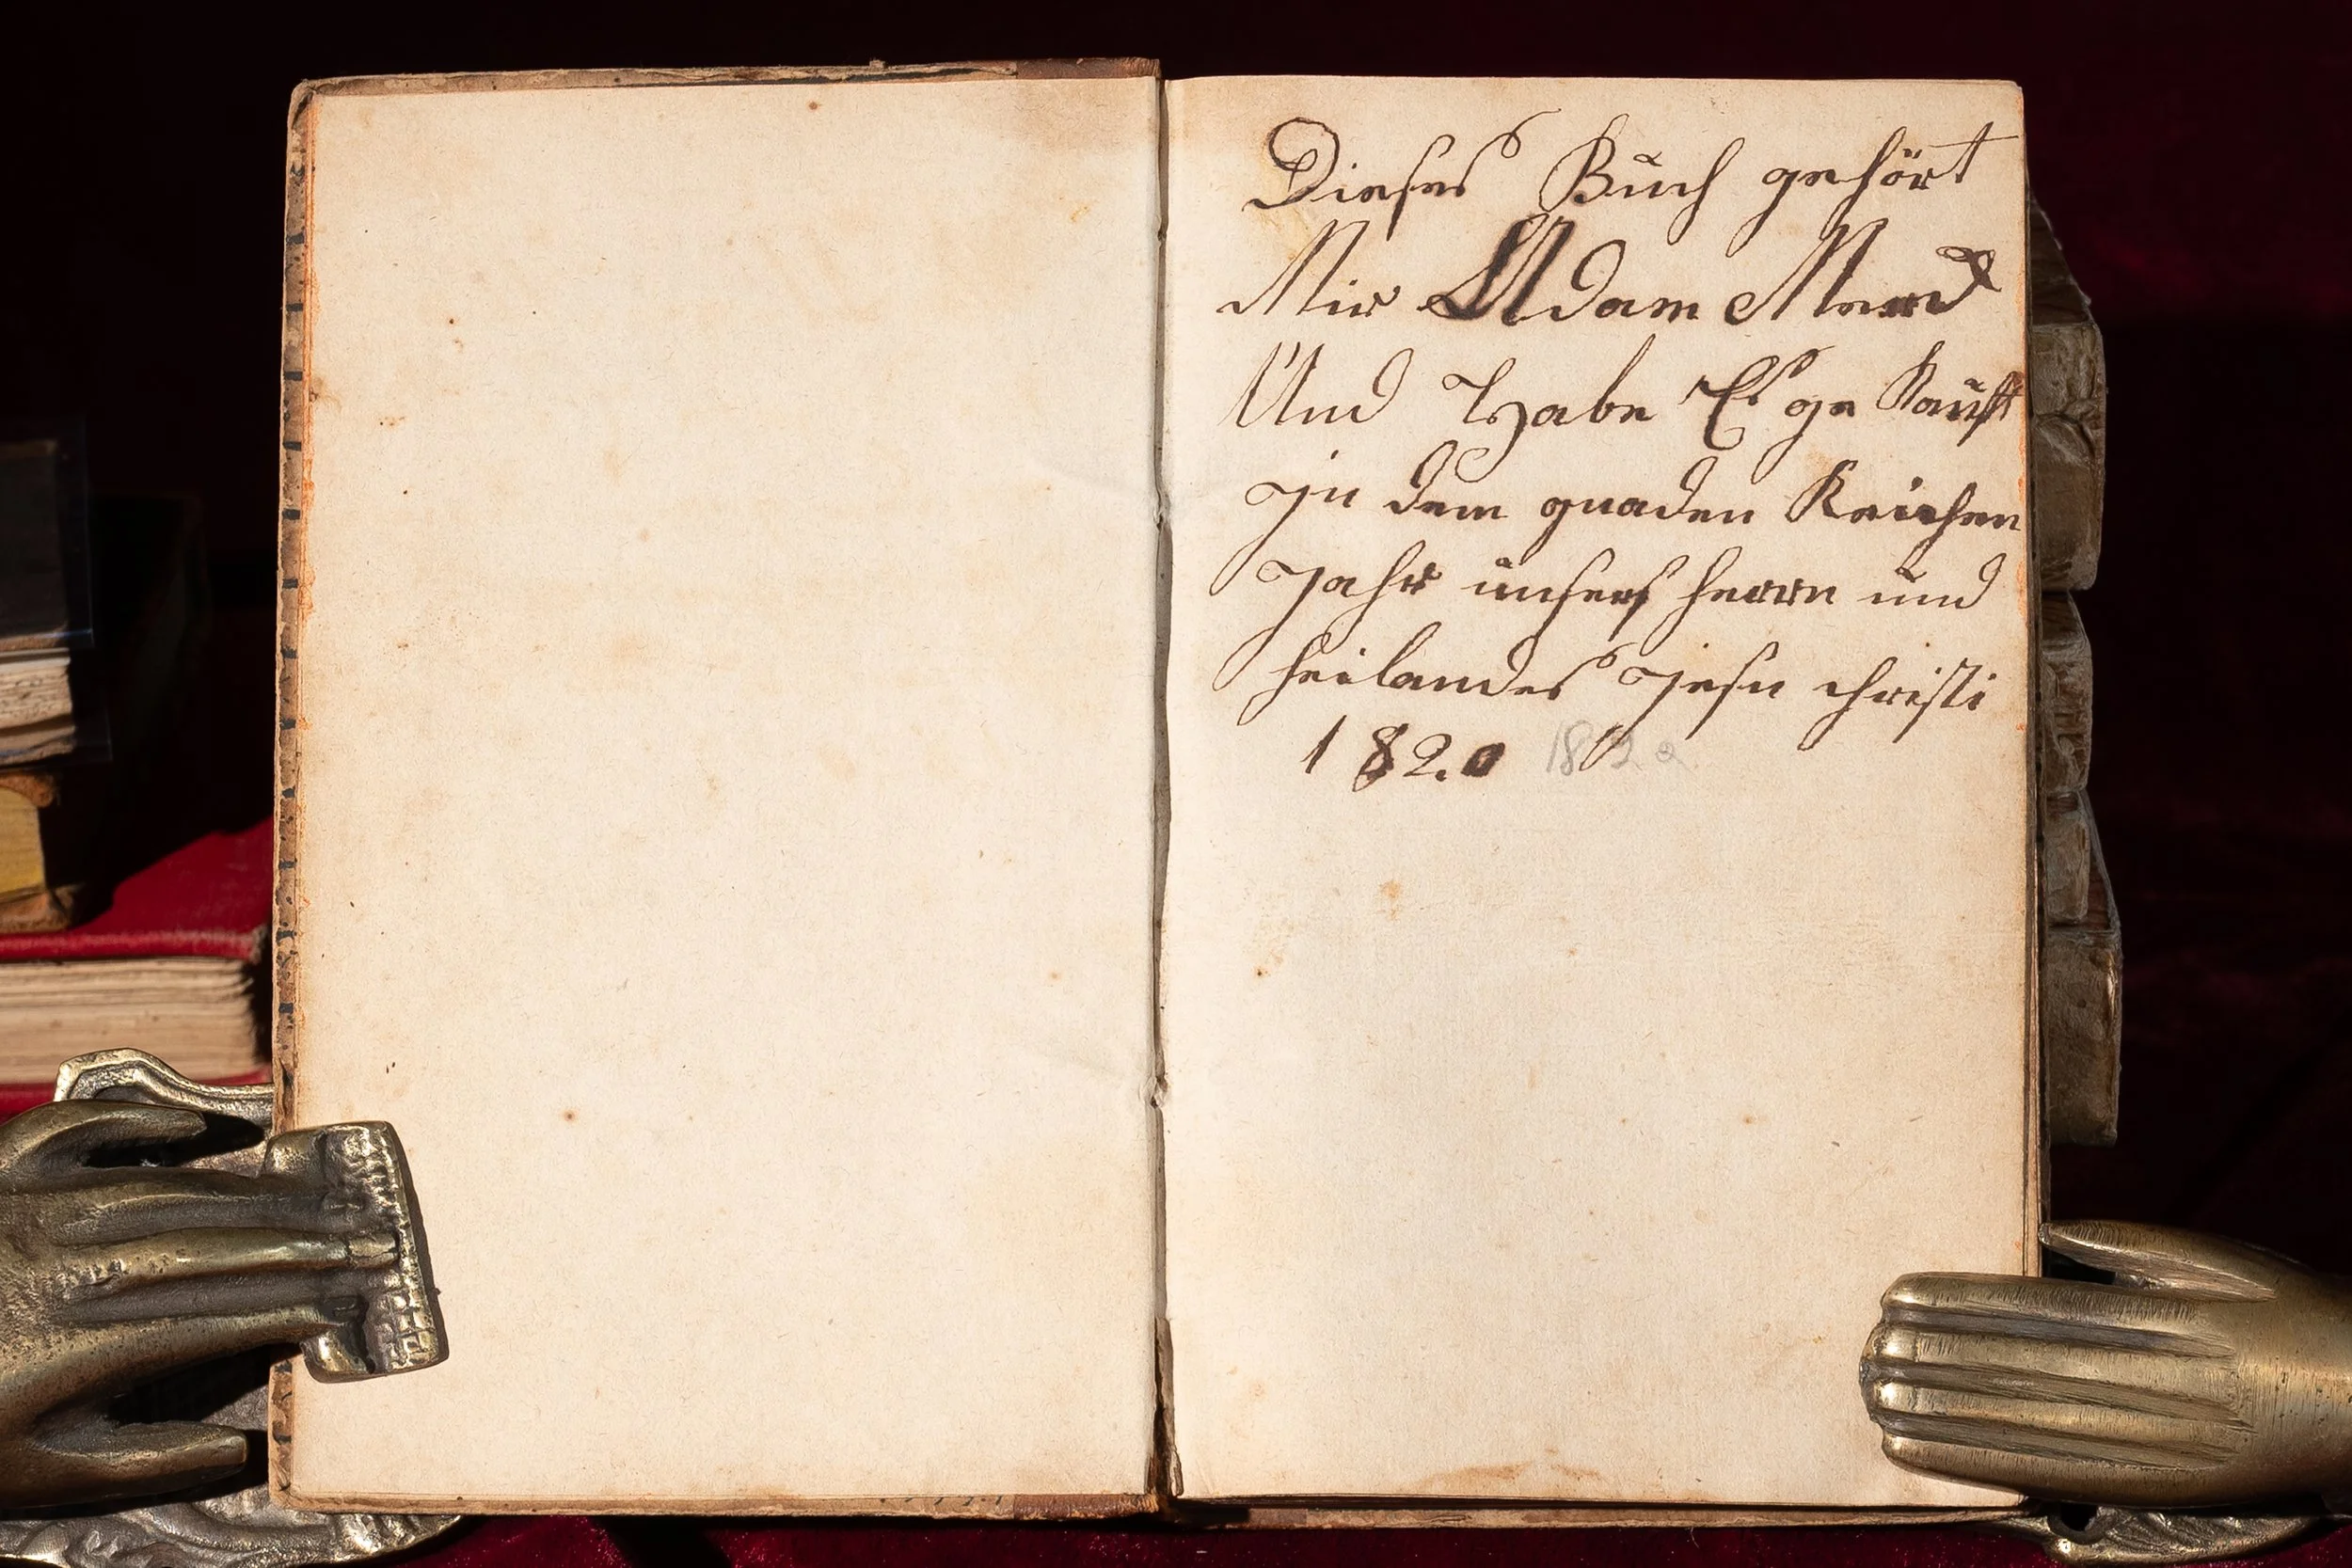 Dieses Buch gehört
Mir Adam
Und Habe Es ge Kauft
In dem gnaden Reichen
Jahr unsers herrn und
heilandes Jesu christi
1820